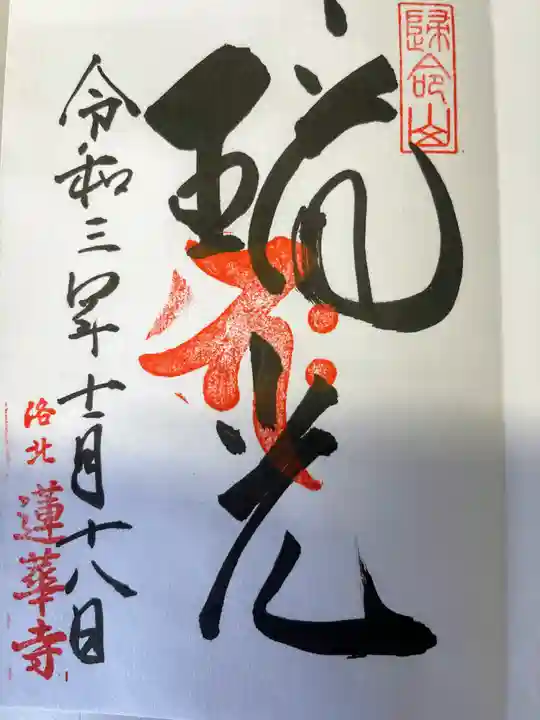 歸命山
瑞光
令和三年十一月十八日
洛北
蓮華寺